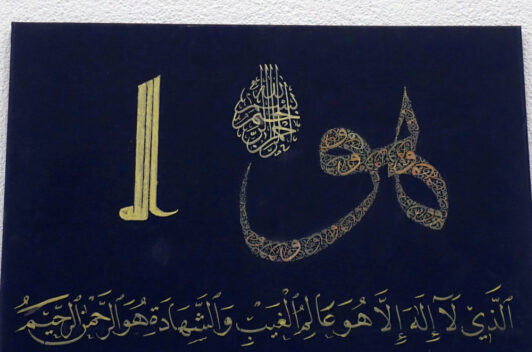 بسم الله الرحمن الرحيم
هو الله
الَّذِي لَآ إِلَهَ إِلَّا هُوَ عَالِمُ الْغَيْبِ وَالشَّهَادَةِ هُوَ الرَّحْمَنُ الرَّحِيمُ